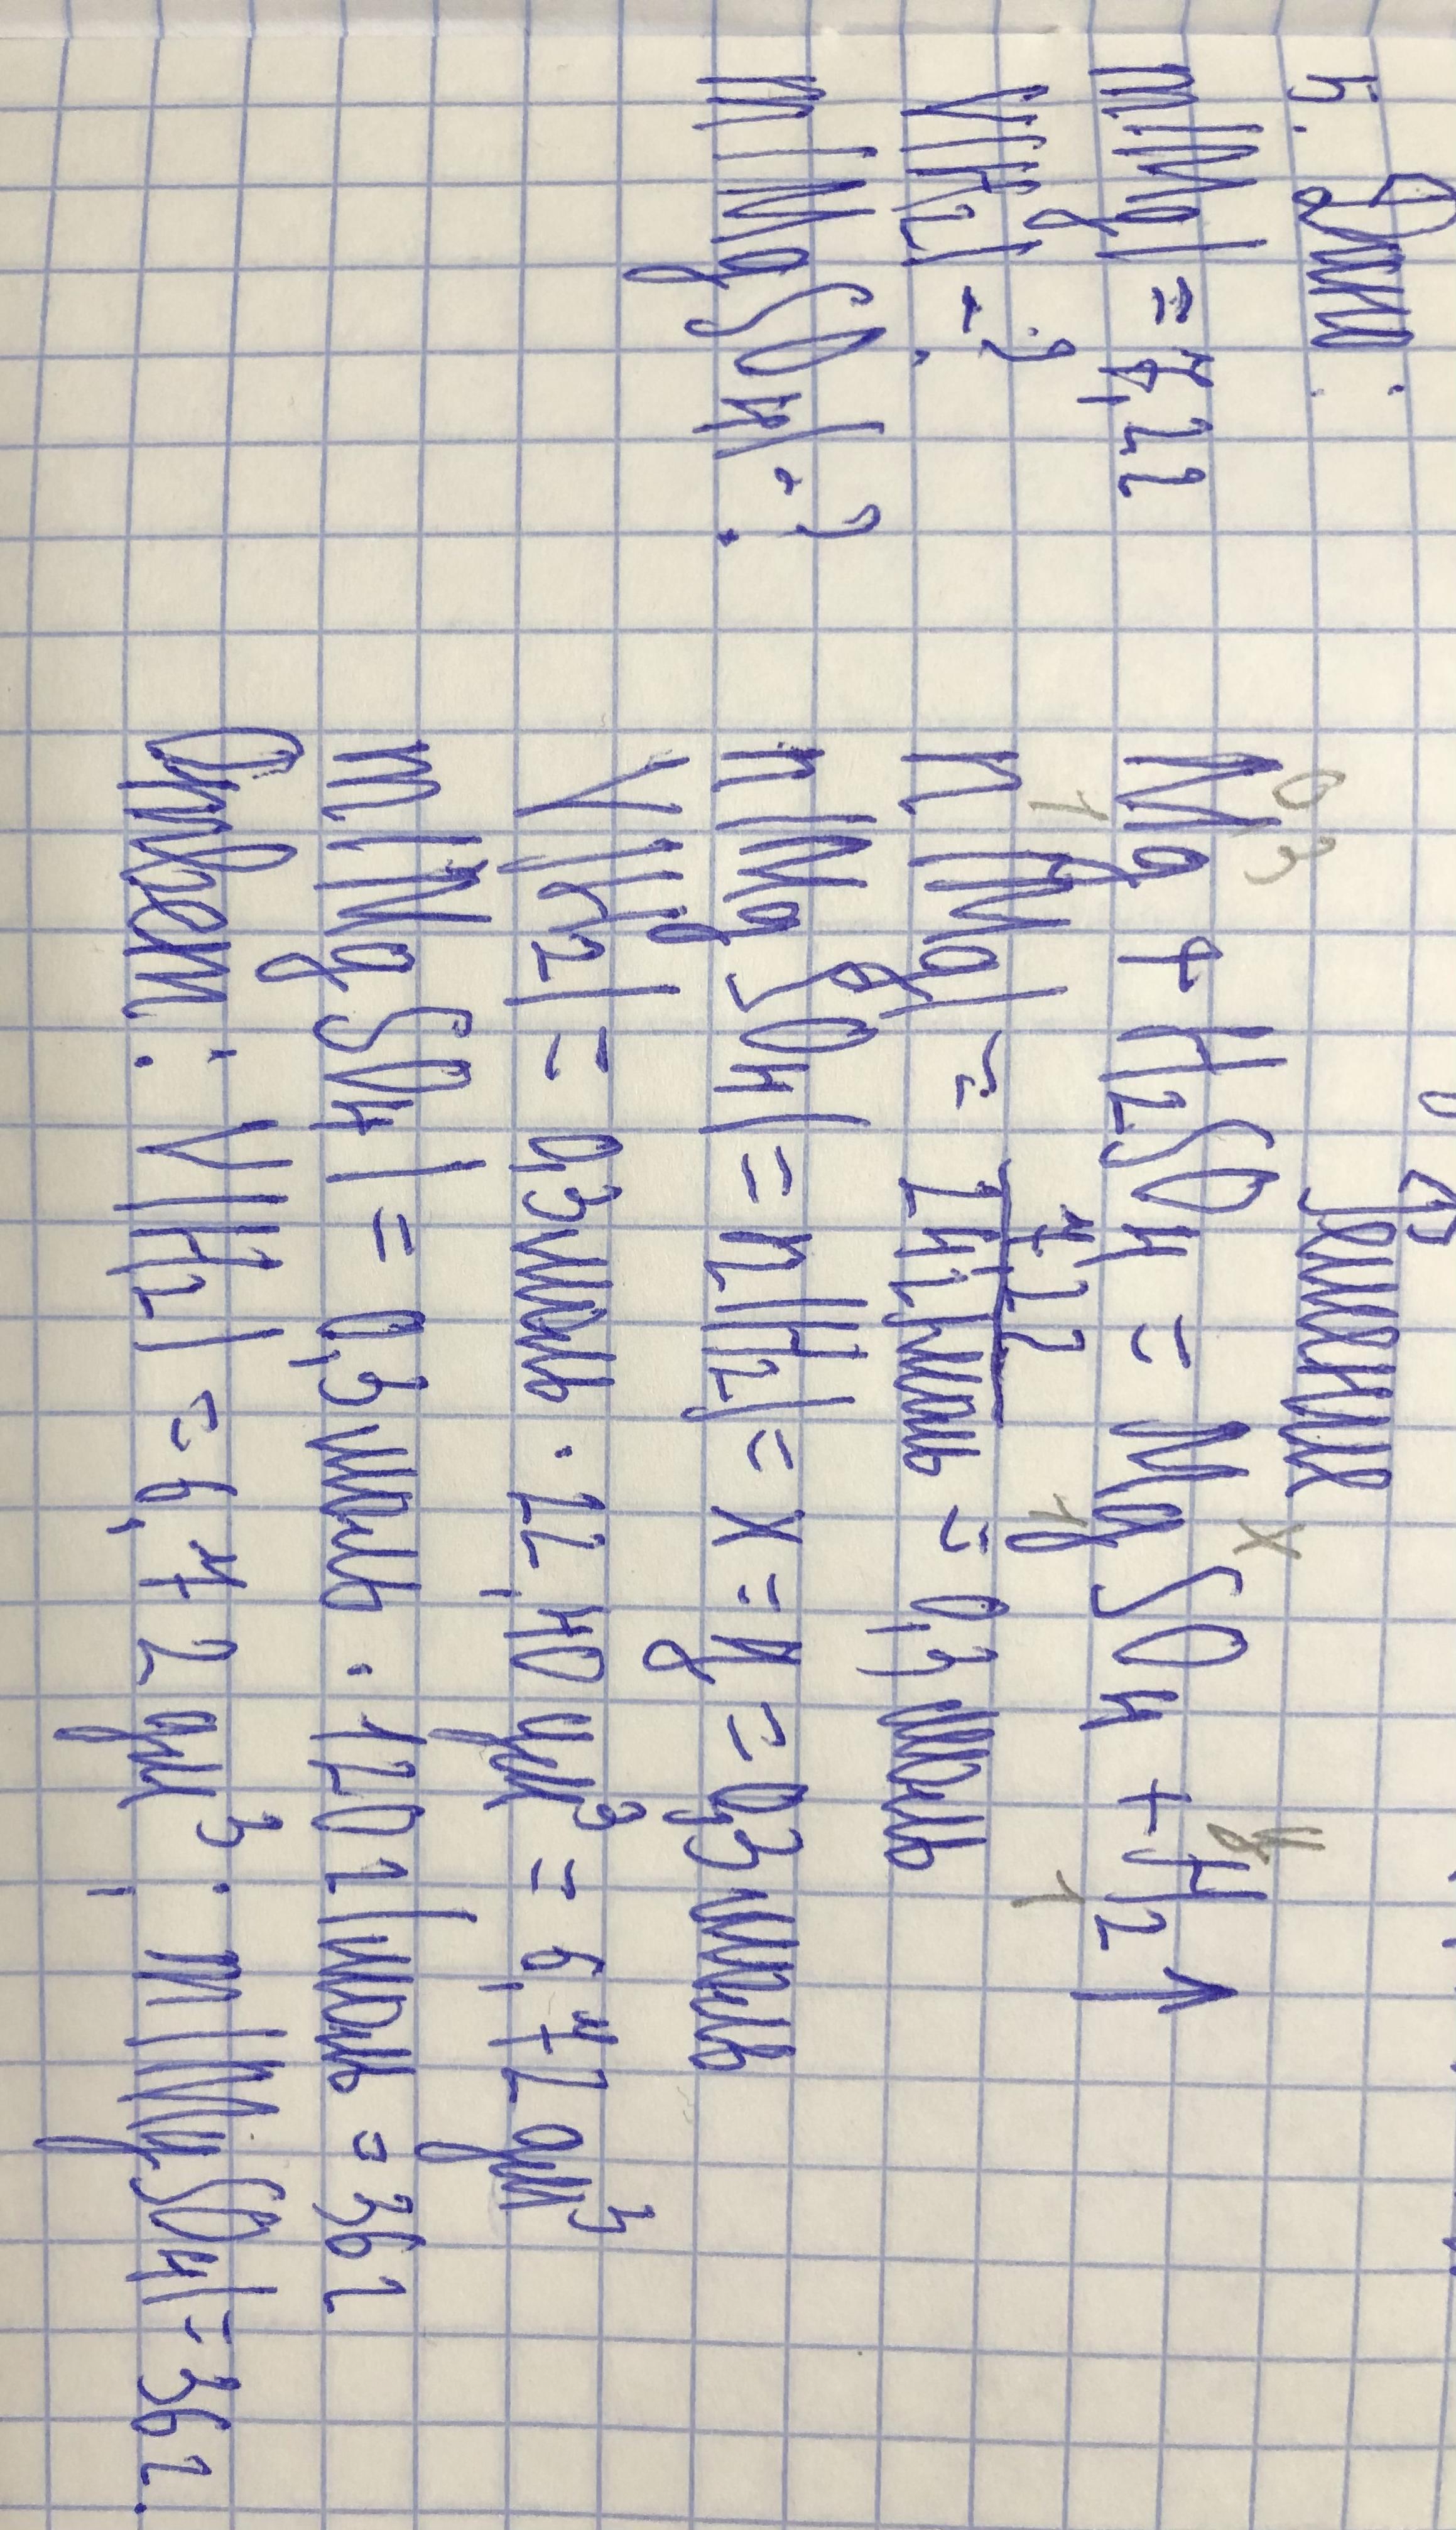 5. Дано:
m(Mg) = 7,2г
V(H2) - ?
m(MgSO4) - ?
Решение
0,3 x y
Mg + H2SO4 = MgSO4 + H2↑
1 1 1
n(Mg) = 7,2г / 24г/моль = 0,3 моль
n(MgSO4) = n(H2) = x = y = 0,3 моль
V(H2) = 0,3 моль · 22,40 дм³ = 6,72 дм³
m(MgSO4) = 0,3 моль · 120 г/моль = 36г
Ответ: V(H2) = 6,72 дм³; m(MgSO4) = 36г.